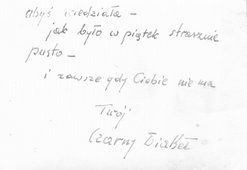 abyś wiedziała –
jak było w piątek strasznie
pusto –
i zawsze gdy Ciebie nie ma
Twój
Czarny Diabeł